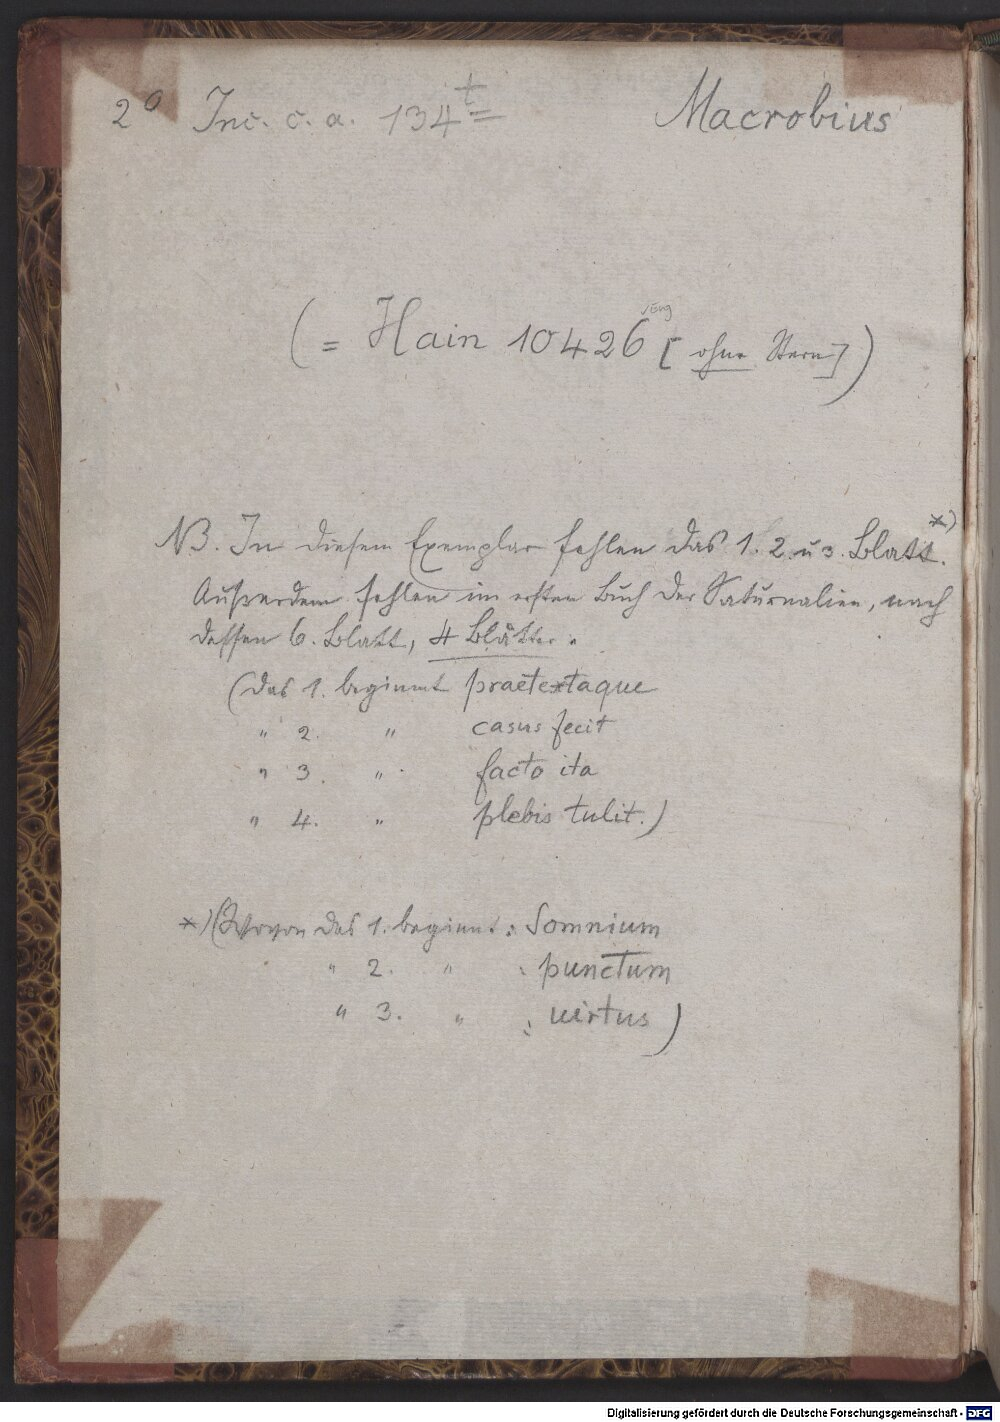 2° Inc. c. a. 134 t Macrobius
(= Hain 10426 [ohne Stern])
NB. In diesem Exemplar fehlen das 1. 2. u 3. Blatt. *)
Außerdem fehlen im ersten Buch der Saturnalien, nach
dessen 6. Blatt, 4 Blätter.
(Das 1. beginnt praetextaque
" 2. " casus fecit
" 3. " facto ita
" 4. " plebis tulit.)
*) (Wovon das 1. beginnt: Somnium
" 2. " : punctum
" 3. " : uirtus)
Digitalisierung gefördert durch die Deutsche Forschungsgemeinschaft - DFG